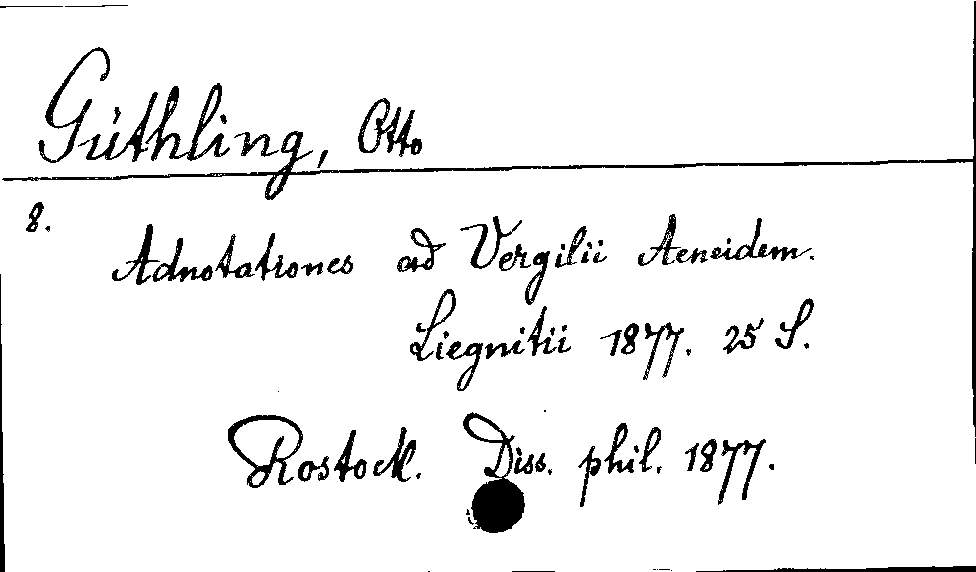 Güthling, Otto
8.
Adnotationes ad Vergilii Aeneidem.
Liegnitii 1877. 25 S.
Rostock. Diss. phil. 1877.